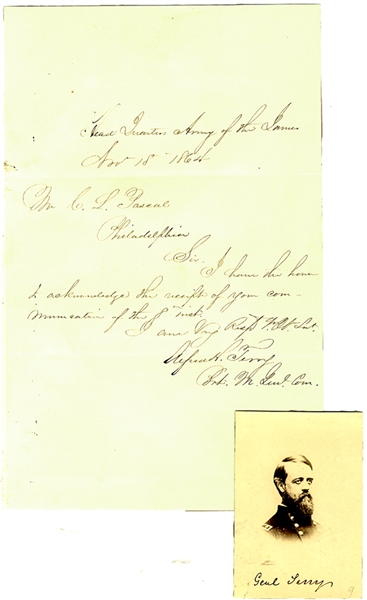 Head Quarters Army of the James
Nov 18 1864
Mr C. L. Pascal
Philadelphia
Sir. I have the honor
to acknowledge the receipt of your com-
munication of the 8" inst.
I am Very Resp Y. Ob Svt.
Alfred H. Terry
Bvt. M. Genl. Com.
Genl Terry